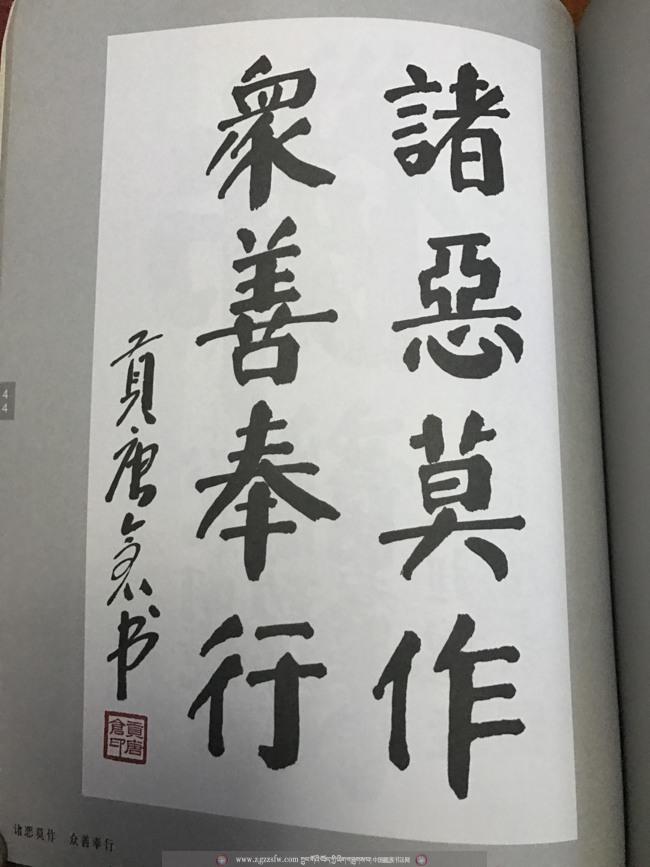 諸惡莫作
眾善奉行
貢唐倉书
貢唐
倉印
诸恶莫作 众善奉行
44
www.zgzzsfw.com
中国藏族书法网